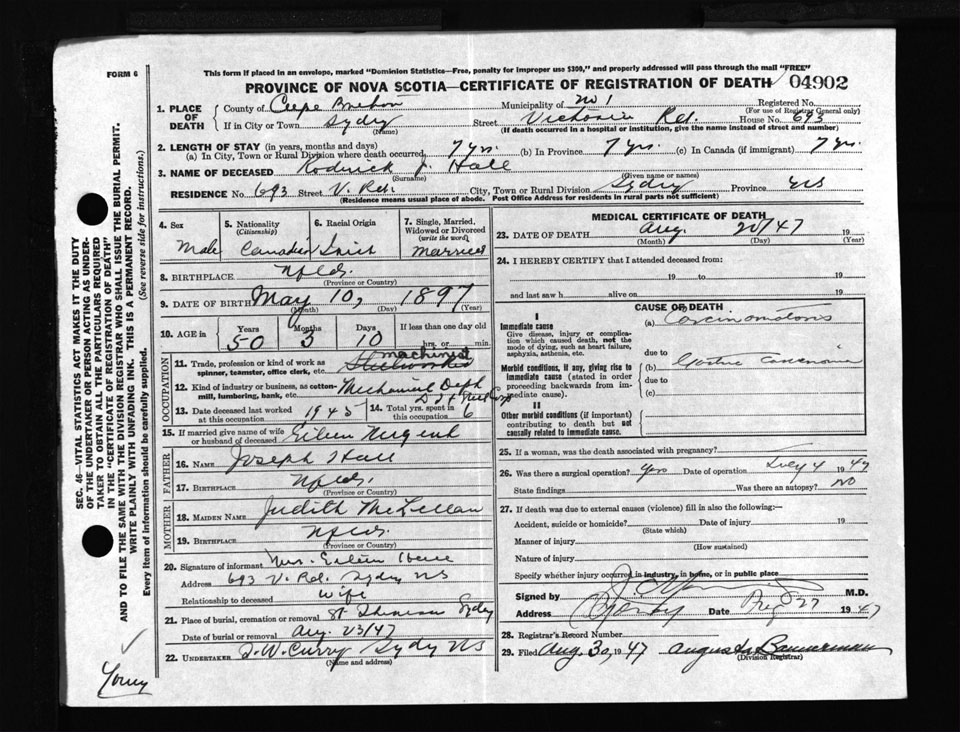 FORM 6
This form if placed in an envelope, marked "Dominion Statistics—Free, penalty for improper use $300," and properly addressed will pass through the mail "FREE"
PROVINCE OF NOVA SCOTIA—CERTIFICATE OF REGISTRATION OF DEATH 04902
1. PLACE OF DEATH
County of Cape Breton Municipality of No 1 Registered No.
(For use of Registrar General only)
If in City or Town Sydney Street Victoria Rd. House No. 693
(Name) (If death occurred in a hospital or institution, give the name instead of street and number)
2. LENGTH OF STAY (in years, months and days)
(a) In City, Town or Rural Division where death occurred 7 yrs. (b) In Province 7 yrs. (c) In Canada (if immigrant) 7 yrs
3. NAME OF DECEASED Roderick J. Hall
(Surname) (Given name or names)
RESIDENCE No. 693 Street V. Rd. City, Town or Rural Division Sydney Province NS
(Residence means usual place of abode. Post Office Address for residents in rural parts not sufficient)
4. Sex
Male
5. Nationality
(Citizenship)
Canadian
6. Racial Origin
Irish
7. Single, Married, Widowed or Divorced
(write the word)
Married
8. BIRTHPLACE Nfld.
(Province or Country)
9. DATE OF BIRTH May 10, 1897
(Month) (Day) (Year)
10. AGE in Years Months Days If less than one day old
50 3 10 hrs. or min.
OCCUPATION
11. Trade, profession or kind of work as spinner, teamster, office clerk, etc. machinist
12. Kind of industry or business, as cotton-mill, lumbering, bank, etc. Mechanical Dept
13. Date deceased last worked at this occupation 1945
14. Total yrs. spent in this occupation 6
15. If married give name of wife or husband of deceased Eileen Nugent
FATHER
16. NAME Joseph Hall
17. BIRTHPLACE Nfld.
(Province or Country)
MOTHER
18. MAIDEN NAME Judith McLellan
19. BIRTHPLACE Nfld.
(Province or Country)
20. Signature of informant Mrs. Eileen
Address 693 V. Rd. Sydney NS
Relationship to deceased Wife
21. Place of burial, cremation or removal Sydney
Date of burial or removal Aug. 23/47
22. UNDERTAKER D.W. Curry Sydney NS
(Name and address)
MEDICAL CERTIFICATE OF DEATH
23. DATE OF DEATH Aug. 20/47 19
(Month) (Day) (Year)
24. I HEREBY CERTIFY that I attended deceased from:
19 to 19
and last saw h alive on 19
CAUSE OF DEATH
I
Immediate cause
Give disease, injury or complication which caused death, not the mode of dying, such as heart failure, asphyxia, asthenia, etc.
(a) Carcinomatosis
due to
Morbid conditions, if any, giving rise to immediate cause (stated in order proceeding backwards from immediate cause).
(b) Gastric carcinoma
due to
(c)
II
Other morbid conditions (if important) contributing to death but not causally related to immediate cause.
25. If a woman, was the death associated with pregnancy?
26. Was there a surgical operation? Yes Date of operation July 4 1947
State findings Was there an autopsy? NO
27. If death was due to external causes (violence) fill in also the following:—
Accident, suicide or homicide? Date of injury 19
(State which)
Manner of injury
(How sustained)
Nature of injury
Specify whether injury occurred in industry, in home, or in public place
Signed by M.D.
Address Date Aug 27 1947
28. Registrar's Record Number
29. Filed Aug. 30, 1947 Augusta Bannerman
(Division Registrar)
SEC. 46—VITAL STATISTICS ACT MAKES IT THE DUTY OF THE UNDERTAKER OR PERSON ACTING AS UNDERTAKER TO OBTAIN ALL THE PARTICULARS REQUIRED IN THE "CERTIFICATE OF REGISTRATION OF DEATH" AND TO FILE THE SAME WITH THE DIVISION REGISTRAR WHO SHALL ISSUE THE BURIAL PERMIT.
WRITE PLAINLY WITH UNFADING INK. THIS IS A PERMANENT RECORD.
Every item of information should be carefully supplied. (See reverse side for instructions.)